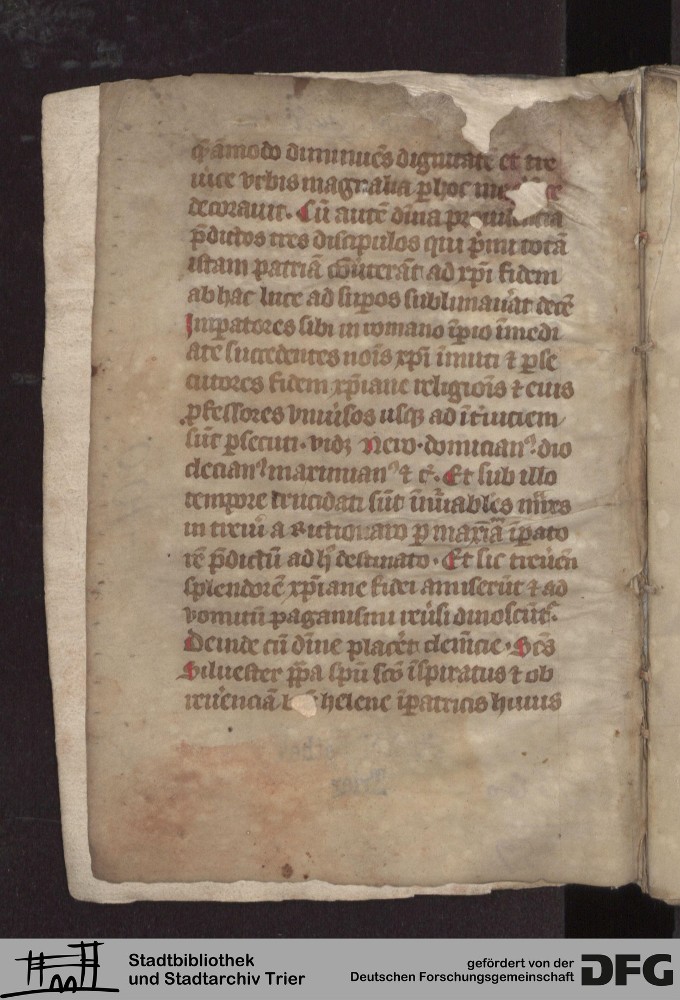 q̄ amodo diminuēs dignitatē et tre
uice vrbis magnalia ꝑ hoc me
decorauit. Cū autē diuia prouidencia
p̄dictos tres discipulos qui p̄mi totā
istam patriā cōuterāt ad xp̄i fidem
ab hac luce ad suꝑos sublimauāt decē
Imꝑatores sibi in romano īꝑio īmedi
ate succedentes nōīs xp̄i īmici ⁊ ꝑse
cutores fidem xp̄iane religiōīs ⁊ eius
ꝓfessores vniūsos usqꝫ ad īt̄niciem
sūt ꝑsecuti. vidꝫ Nero. domicianꝰ. dio
clecianꝰ maximianꝰ ⁊ c̄. Et sub illo
tempore trucidati sūt īnūiabiles mr̄es
in treūi a Rictionaro ꝑ maxīa īꝑato
rē p̄dictū ad h̄ destinato. Et sic treūen
splendorē xp̄iane fidei amiserūt ⁊ ad
vomitū paganismi reūsi dinoscūt᷑.
Deinde cū dīne placēt clem̄cie. Scūs
Siluester pp̄a spū scō īspiratus ⁊ ob
reūēnciā helene īꝑatricis huius
Stadtbibliothek
und Stadtarchiv Trier
gefördert von der
Deutschen Forschungsgemeinschaft
DFG